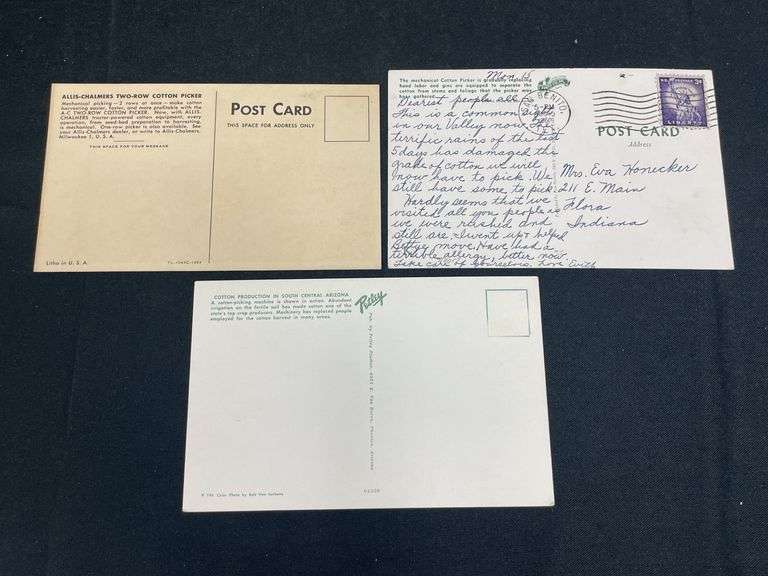 ALLIS-CHALMERS TWO-ROW COTTON PICKER
Mechanical picking — 2 rows at once — make cotton
harvesting easier, faster, and more profitable with the
A-C TWO-ROW COTTON PICKER. Now, with ALLIS-
CHALMERS tractor-powered cotton equipment, every
operation, from seed-bed preparation to harvesting,
is mechanical. One-row picker is also available. See
your Allis-Chalmers dealer, or write to Allis-Chalmers,
Milwaukee 1, U. S. A.
THIS SPACE FOR YOUR MESSAGE
POST CARD
THIS SPACE FOR ADDRESS ONLY
Litho in U. S. A.
Mon 15
The mechanical Cotton Picker is gradually replacing
hand labor and gins are equipped to separate the
cotton from stems and foliage that the picker may
have gathered.
Dearest people all :
This is a common sight
in our Valley now.
terrific rains of the last
5 days has damaged the
grade of cotton we will
now have to pick. We
still have some to pick.
Hardly seems that we
visited all you people as
we were rushed and
still are - I went up & helped
Bettye move. Have had a
terrible allergy, better now
Take care of yourselves. Love Edith
BENITO,
PM
TEX
3¢
POST CARD
Address
Mrs. Eva Honecker
211 E. Main
Flora
Indiana
COTTON PRODUCTION IN SOUTH CENTRAL ARIZONA
A cotton-picking machine is shown in action. Abundant
irrigation on the fertile soil has made cotton one of the
state's top crop producers. Machinery has replaced people
employed for the cotton harvest in many areas.
Petley
Color Photo by Bob